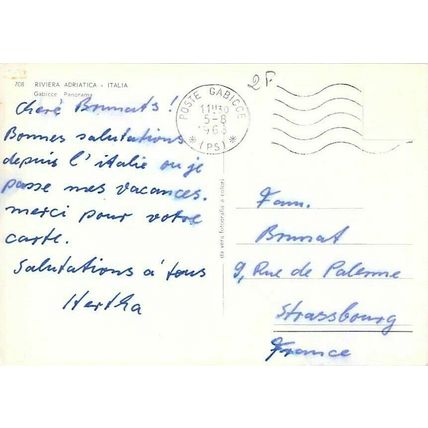 708 RIVIERA ADRIATICA - ITALIA
Gabicce Panorama
Cheré Brumats!
Bonnes salutations
depuis l'italie ou je
passe mes vacances.
merci pour votre
carte.
Salutations á tous
Hertha
POSTE GABICCE
5-8
1963
* (PS) *
2F
da vera fotografia a colori
Fam.
Brumat
9, Rue de Palerme
Strassbourg
France